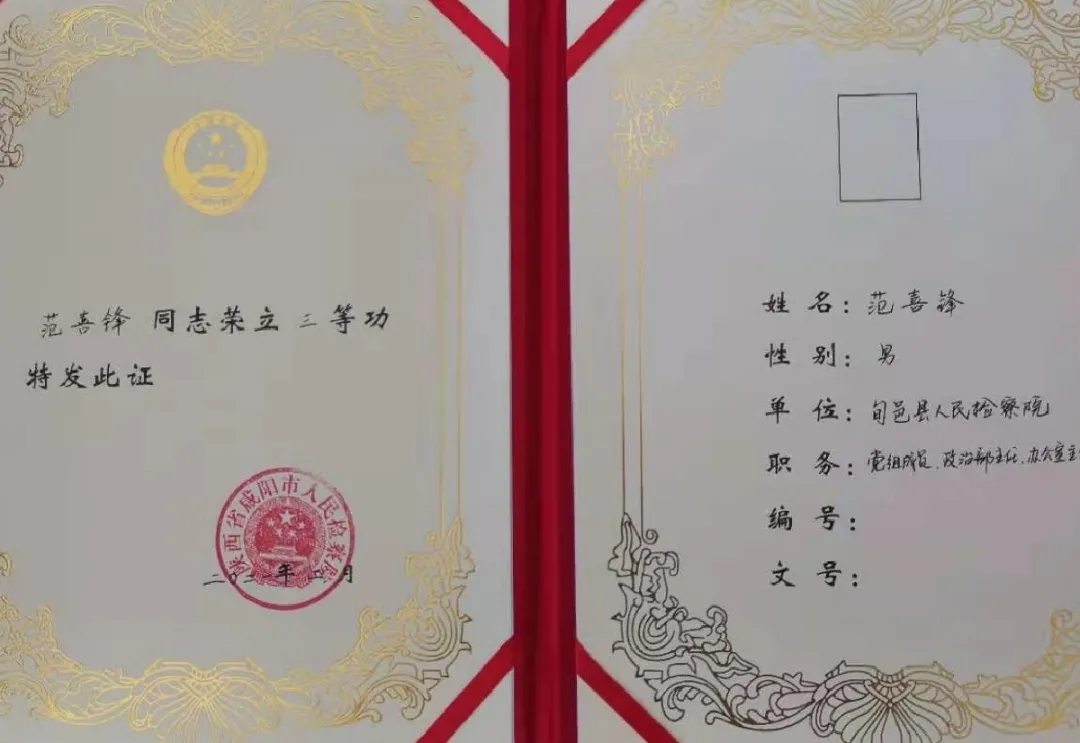 范喜锋 同志荣立 三等功
特发此证
陕西省咸阳市人民检察院
年 月
姓 名：范喜锋
性 别：男
单 位：旬邑县人民检察院
职 务：党组成员、政治部主任、办公室主
编 号：
文 号：